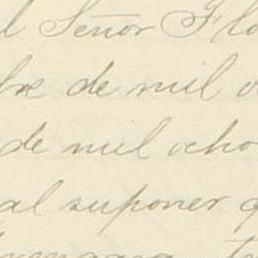 l Señor Flo
bre de mil o
de mil ocho
al suponer q